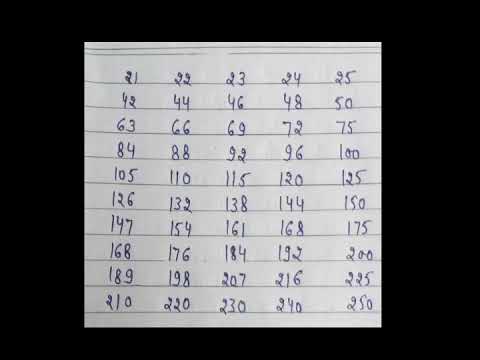 21 22 23 24 25
42 44 46 48 50
63 66 69 72 75
84 88 92 96 100
105 110 115 120 125
126 132 138 144 150
147 154 161 168 175
168 176 184 192 200
189 198 207 216 225
210 220 230 240 250